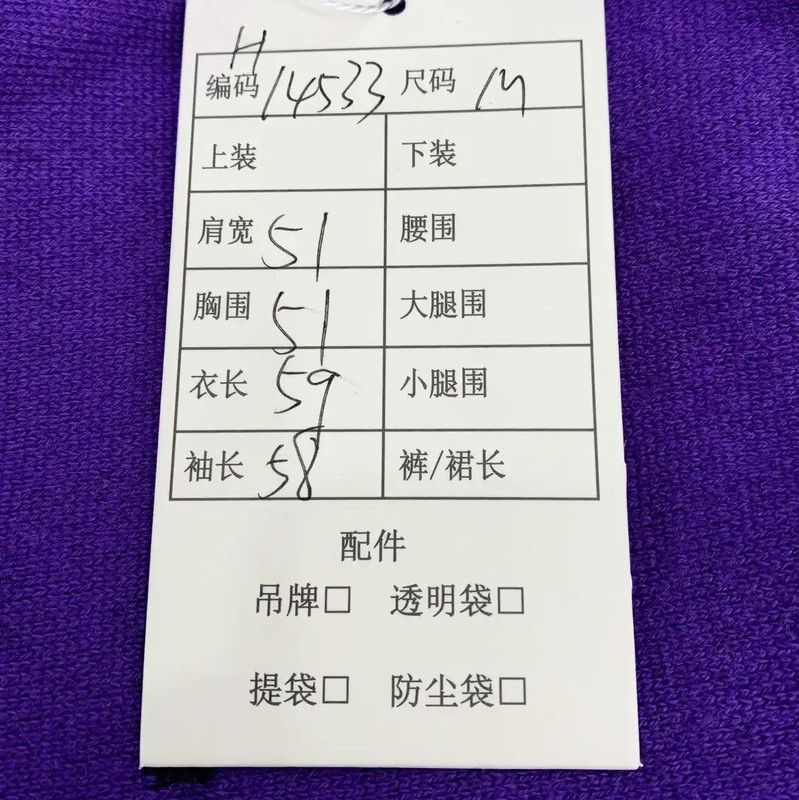 H
编码 14533 尺码 M
上装 下装
肩宽 51 腰围
胸围 51 大腿围
衣长 59 小腿围
袖长 58 裤/裙长
配件
吊牌□ 透明袋□
提袋□ 防尘袋□